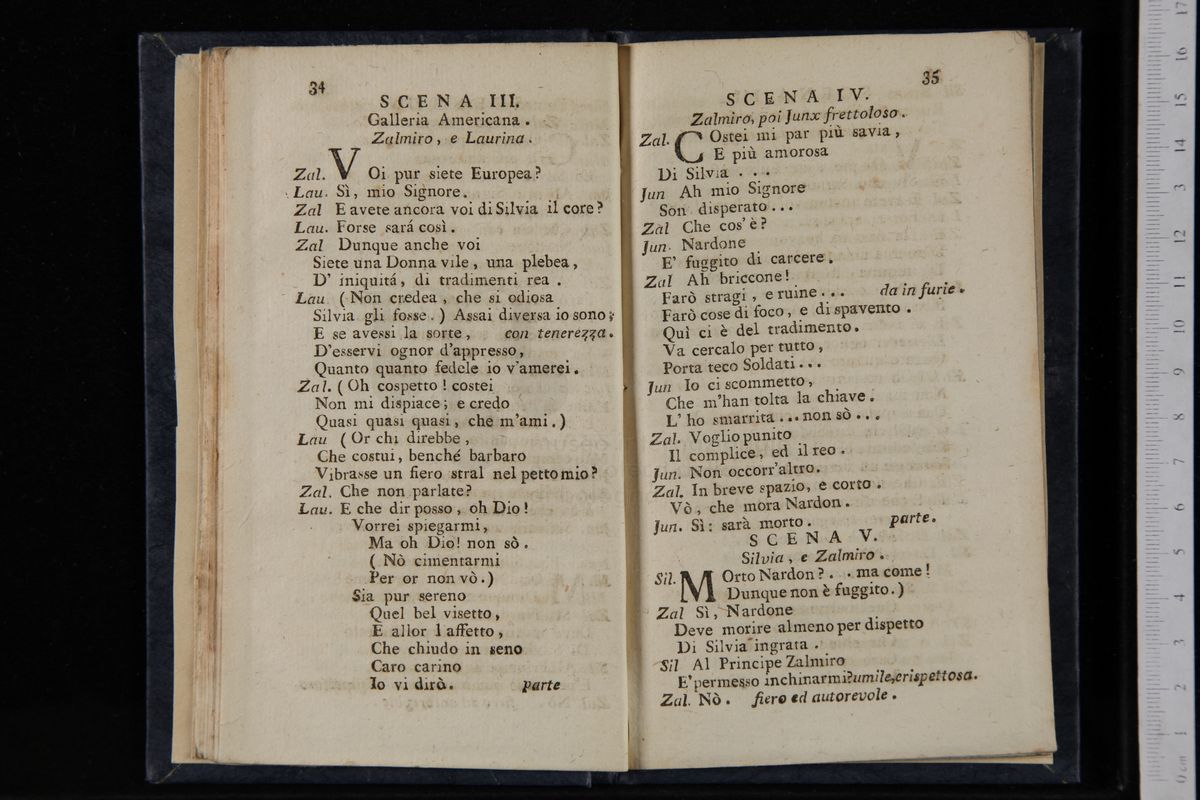 34
SCENA III.
Galleria Americana .
Zalmiro , e Laurina .
Zal. VOi pur siete Europea?
Lau. Sì, mio Signore.
Zal E avete ancora voi di Silvia il core?
Lau. Forse sará così .
Zal Dunque anche voi
Siete una Donna vile , una plebea ,
D' iniquitá, di tradimenti rea .
Lau ( Non credea , che sì odiosa
Silvia gli fosse . ) Assai diversa io sono ;
E se avessi la sorte , con tenerezza .
D'esservi ognor d'appresso ,
Quanto quanto fedele io v'amerei .
Zal. ( Oh cospetto ! costei
Non mi dispiace ; e credo
Quasi quasi quasi , che m'ami . )
Lau ( Or chi direbbe ,
Che costui , benché barbaro
Vibrasse un fiero stral nel petto mio ?
Zal. Che non parlate?
Lau. E che dir posso , oh Dio !
Vorrei spiegarmi ,
Ma oh Dio! non sò .
( Nò cimentarmi
Per or non vò . )
Sia pur sereno
Quel bel visetto ,
E allor l affetto ,
Che chiudo in seno
Caro carino
Io vi dirò . parte
35
SCENA IV.
Zalmiro, poi Junx frettoloso .
Zal. COstei mi par più savia ,
E più amorosa
Di Silvia . . .
Jun Ah mio Signore
Son disperato . . .
Zal Che cos' è ?
Jun. Nardone
E' fuggito di carcere .
Zal Ah briccone !
Farò stragi , e ruine . . . da in furie .
Farò cose di foco , e di spavento .
Quì ci è del tradimento.
Va cercalo per tutto ,
Porta teco Soldati . . .
Jun Io ci scommetto ,
Che m'han tolta la chiave .
L' ho smarrita . . . non sò . . .
Zal. Voglio punito
Il complice , ed il reo .
Jun. Non occorr'altro.
Zal. In breve spazio, e corto .
Vò , che mora Nardon .
Jun. Sì : sarà morto . parte.
SCENA V.
Silvia , e Zalmiro .
Sil. MOrto Nardon ? . . . ma come !
Dunque non è fuggito. )
Zal Sì , Nardone
Deve morire almeno per dispetto
Di Silvia ingrata .
Sil Al Principe Zalmiro
E' permesso inchinarmi? umile, e rispettosa.
Zal. Nò . fiero ed autorevole .
0 cm 1 2 3 4 5 6 7 8 9 10 11 12 13 14 15 16 17